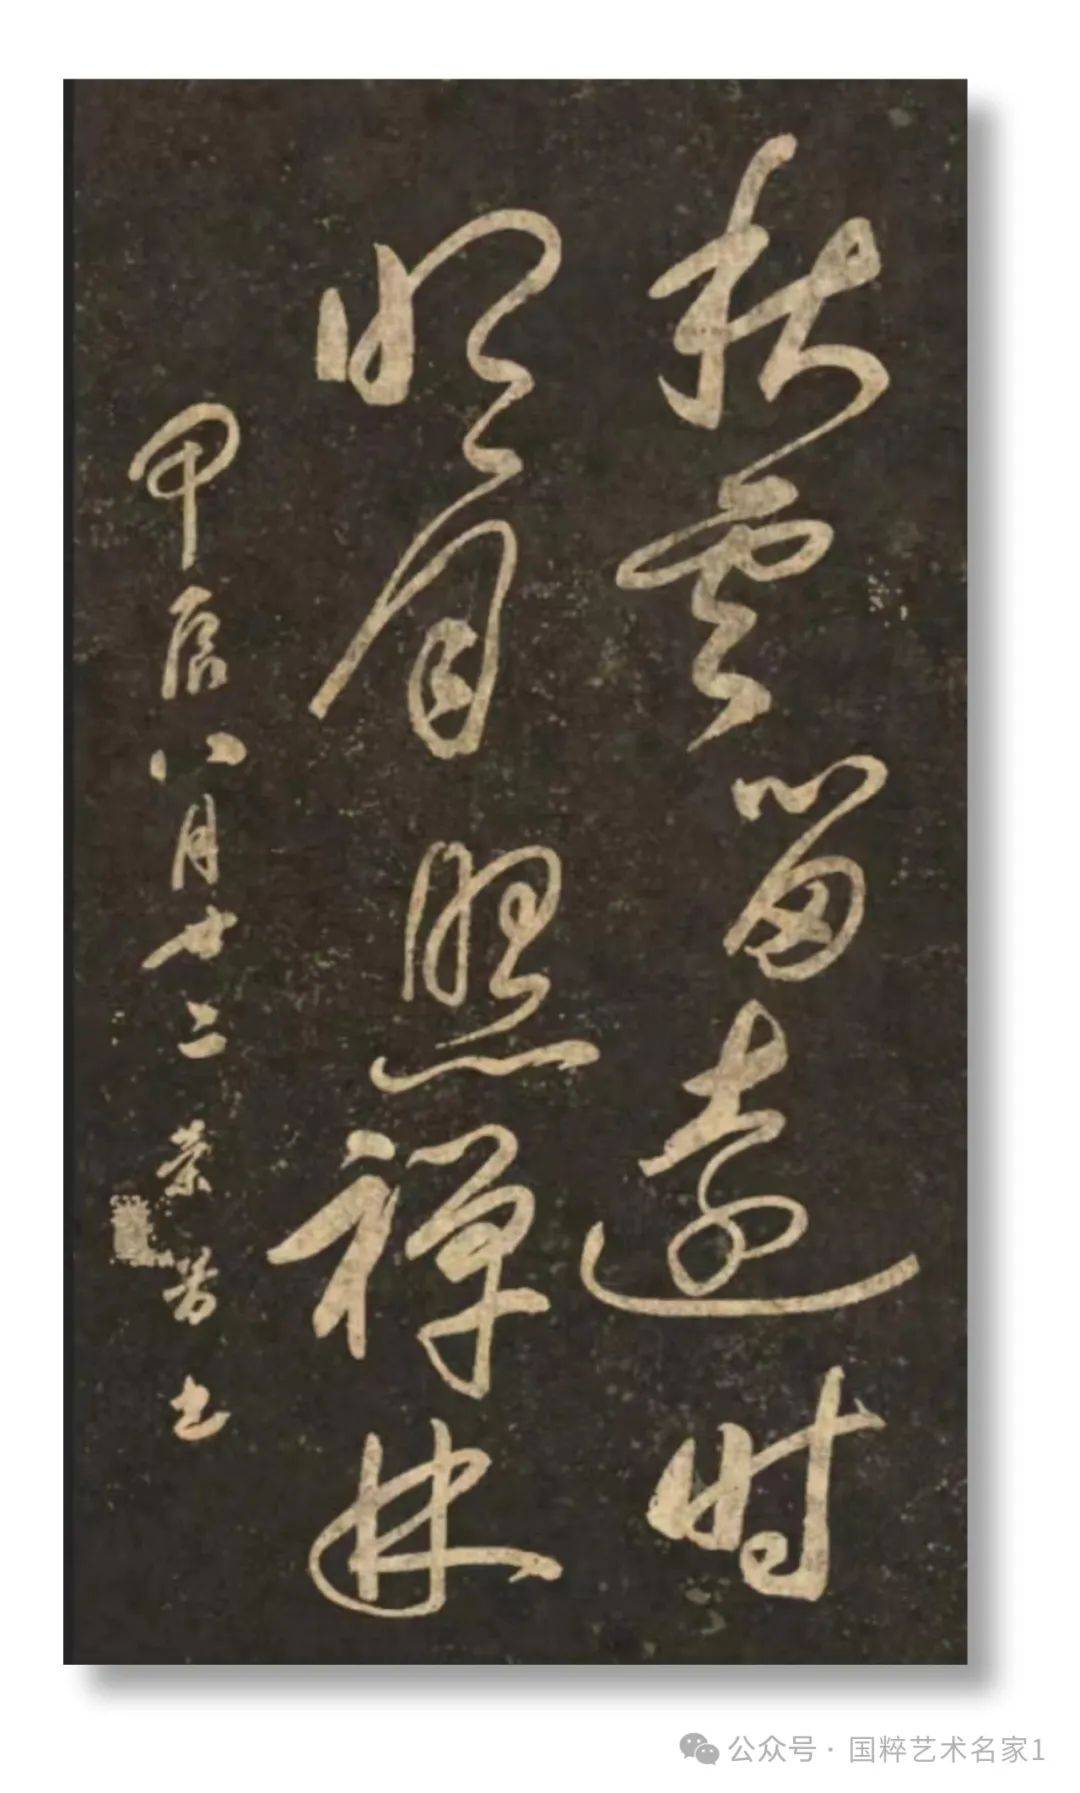 秋云留远时
明月照禅林
甲辰八月十二荣芳书
公众号 · 国粹艺术名家1